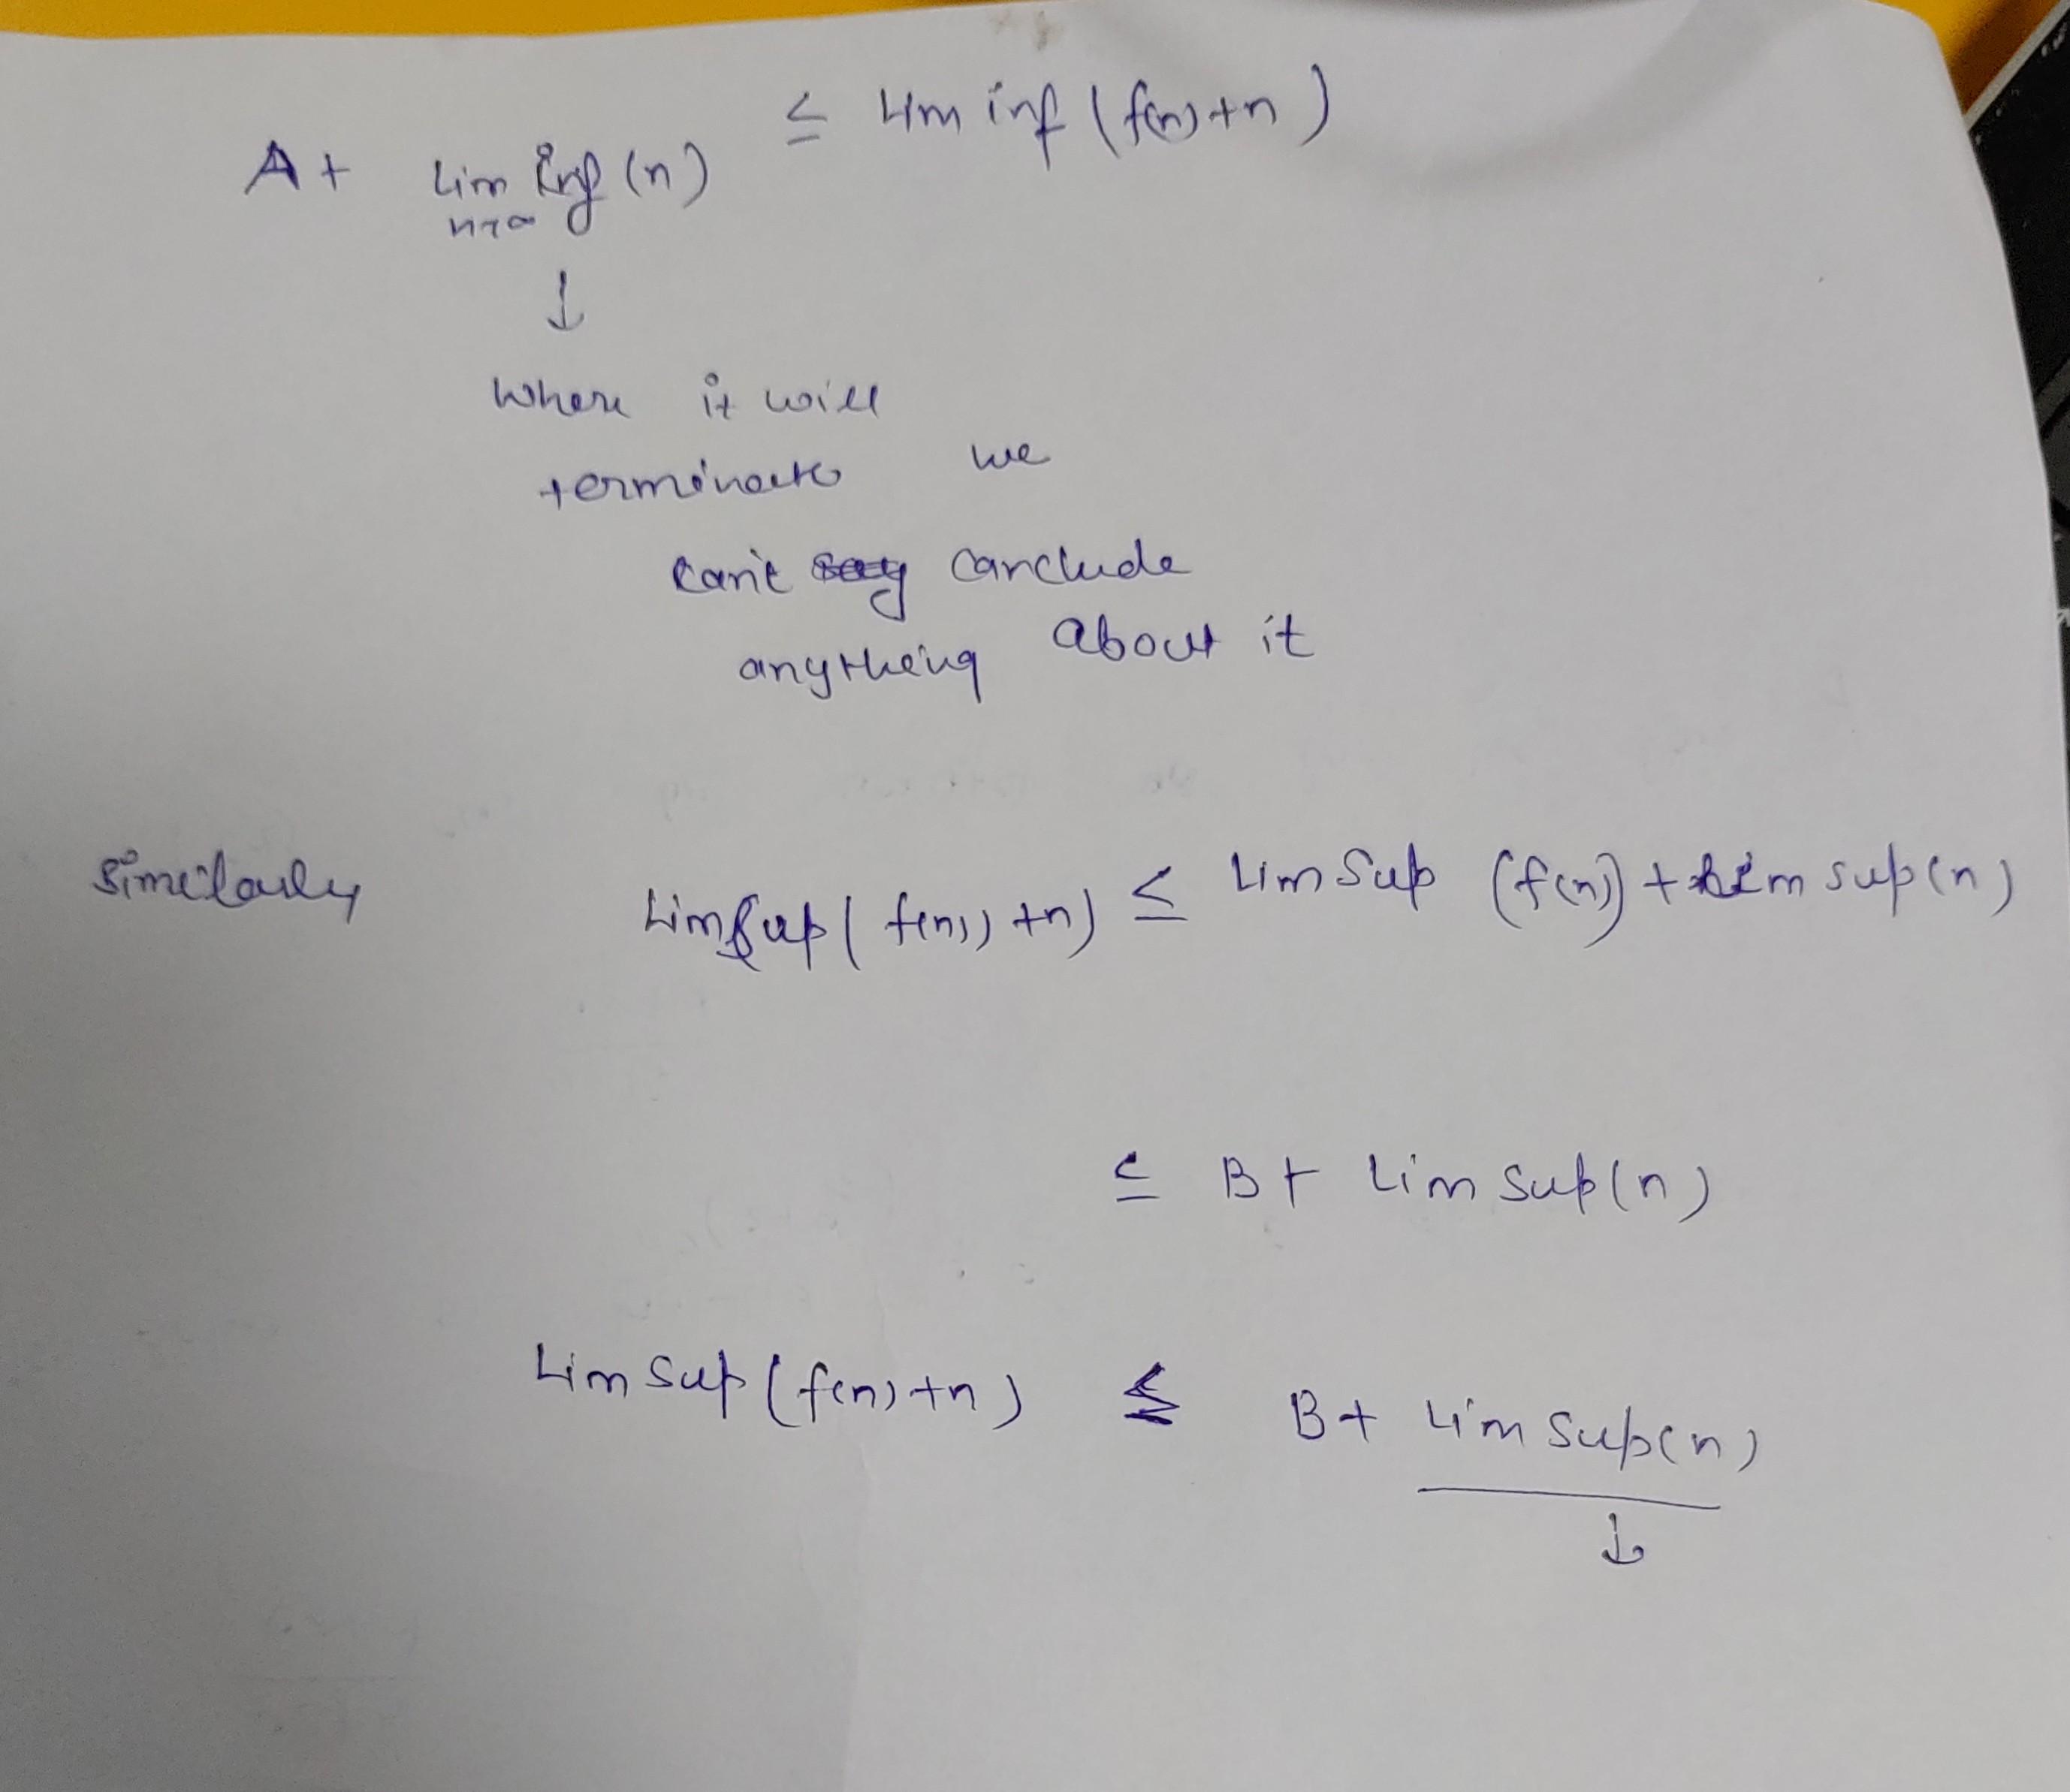 A + lim inf (n) ≤ lim inf (f(n) + n)
n→∞
↓
where it will
terminate we
can't say conclude
anything about it
Similarly lim sup (f(n)) + n) ≤ lim sup (f(n)) + lim sup (n)
≤ B + lim sup (n)
lim sup (f(n) + n) ≤ B + lim sup (n)
↓